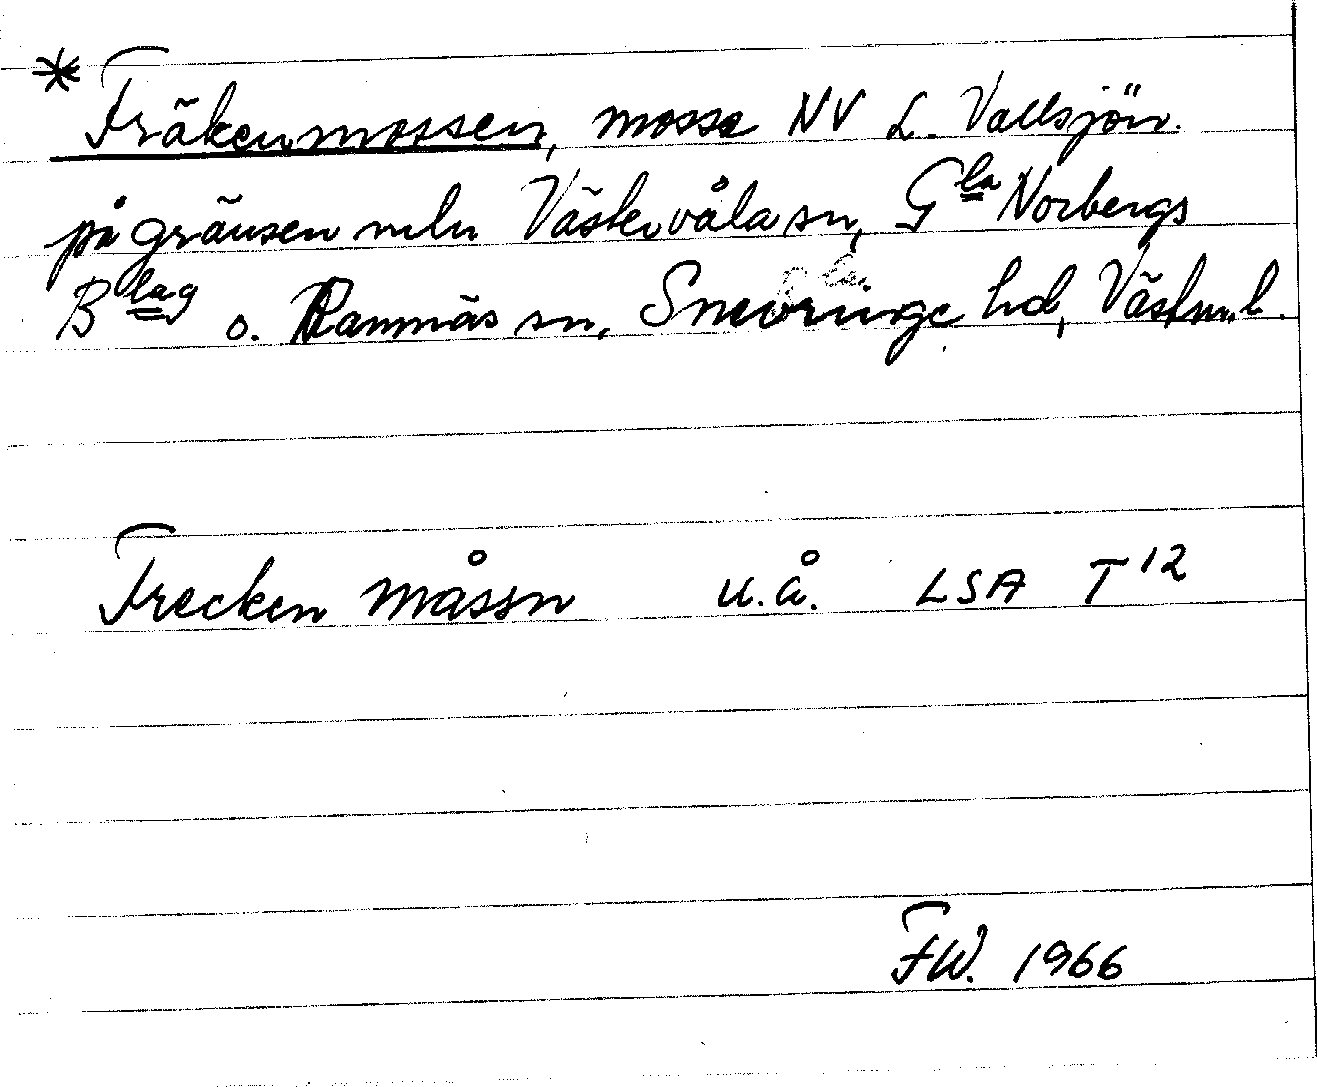 * Fräkenmossen, mosse NV L. Vallsjön.
på gränsen mln Västervåla sn, Gla Norbergs
Blag o. Ramnäs sn, Snevringe hd, Västm. l.
Frecken måssn u.å. LSA T12
FW. 1966